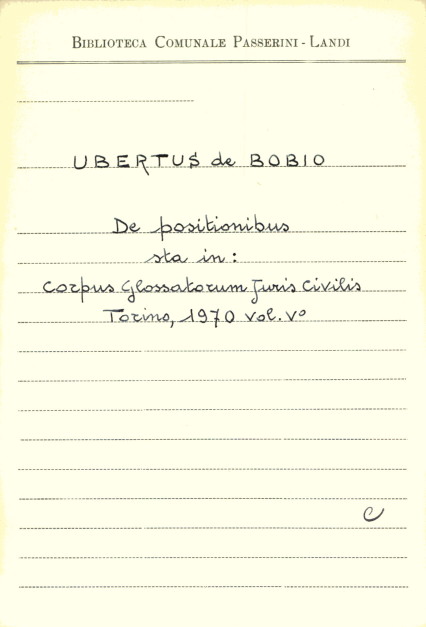 BIBLIOTECA COMUNALE PASSERINI - LANDI
UBERTUS de BOBIO
De positionibus
sta in:
Corpus Glossatorum Juris Civilis
Torino, 1970 vol. Vº
C